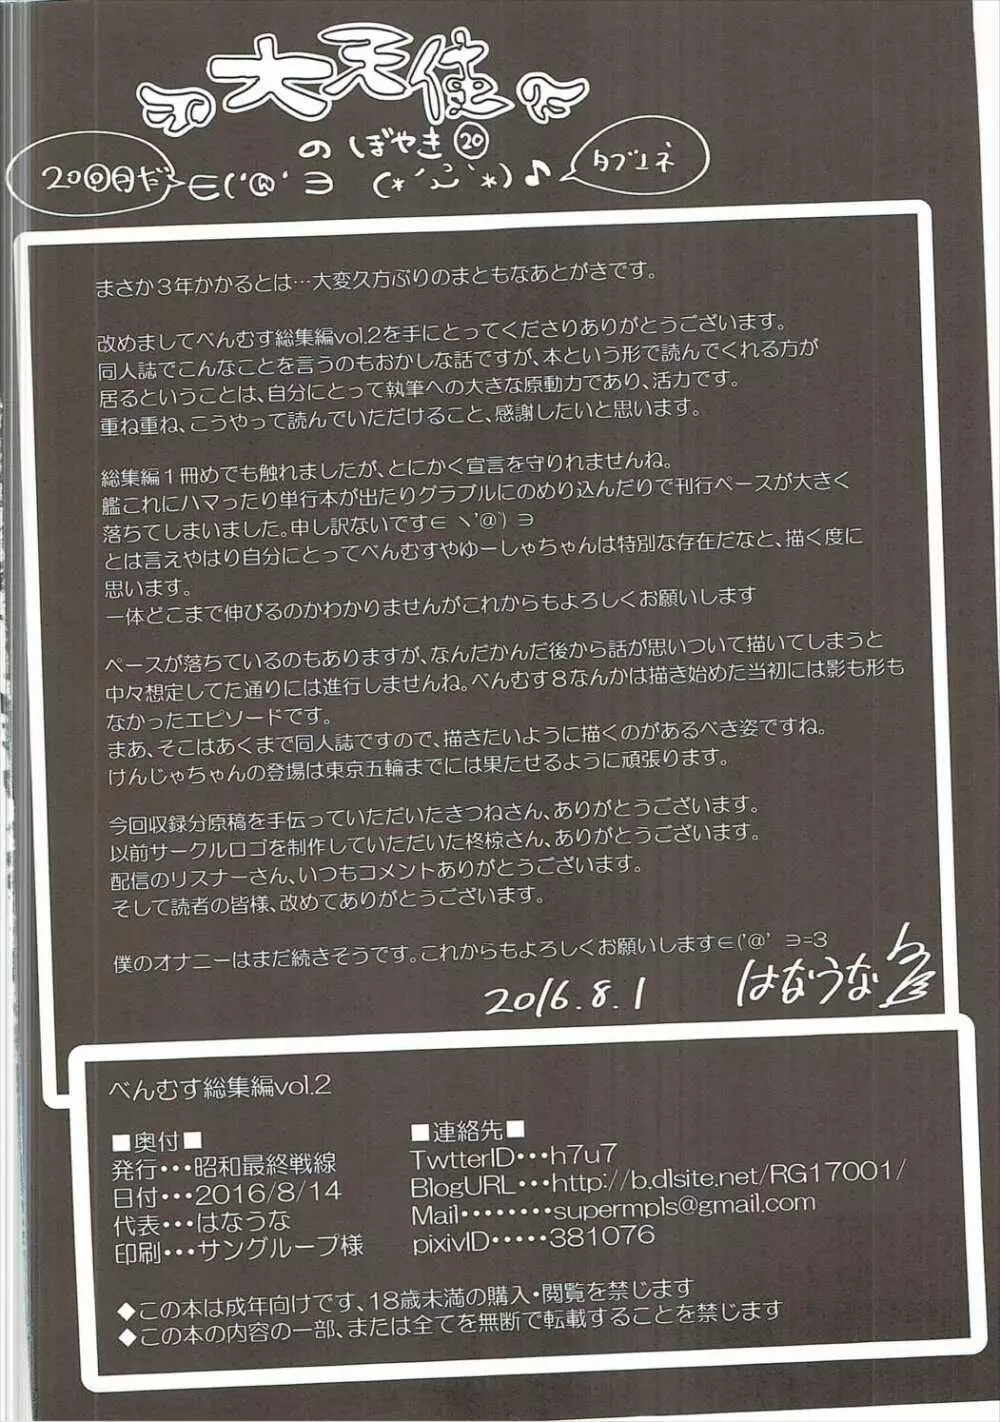 大天使
のぼやき⑳
20回目だ
∈('@'∋ (*´ω`*)♪
タブンネ
まさか3年かかるとは…大変久方ぶりのまともなあとがきです。
改めましてべんむす総集編vol.2を手にとってくださりありがとうございます。
同人誌でこんなことを言うのもおかしな話ですが、本という形で読んでくれる方が
居るということは、自分にとって執筆への大きな原動力であり、活力です。
重ね重ね、こうやって読んでいただけること、感謝したいと思います。
総集編1冊めでも触れましたが、とにかく宣言を守りれませんね。
艦これにハマったり単行本が出たりグラブルにのめり込んだりで刊行ペースが大きく
落ちてしまいました。申し訳ないです∈ヽ'@') ∋
とは言えやはり自分にとってべんむすやゆーしゃちゃんは特別な存在だなと、描く度に
思います。
一体どこまで伸びるのかわかりませんがこれからもよろしくお願いします
ペースが落ちているのもありますが、なんだかんだ後から話が思いついて描いてしまうと
中々想定してた通りには進行しませんね。べんむす8なんかは描き始めた当初には影も形も
なかったエピソードです。
まあ、そこはあくまで同人誌ですので、描きたいように描くのがあるべき姿ですね。
けんじゃちゃんの登場は東京五輪までには果たせるように頑張ります。
今回収録分原稿を手伝っていただいたきつねさん、ありがとうございます。
以前サークルロゴを制作していただいた柊椋さん、ありがとうございます。
配信のリスナーさん、いつもコメントありがとうございます。
そして読者の皆様、改めてありがとうございます。
僕のオナニーはまだ続きそうです。これからもよろしくお願いします∈('@' ∋=3
2016.8.1 はなうな
べんむす総集編vol.2
■奥付■
発行・・・昭和最終戦線
日付・・・2016/8/14
代表・・・はなうな
印刷・・・サングループ様
■連絡先■
TwtterID・・・h7u7
BlogURL・・・http://b.dlsite.net/RG17001/
Mail・・・・・・・・supermpls@gmail.com
pixivID・・・・・381076
◆この本は成年向けです、18歳未満の購入・閲覧を禁じます
◆この本の内容の一部、または全てを無断で転載することを禁じます